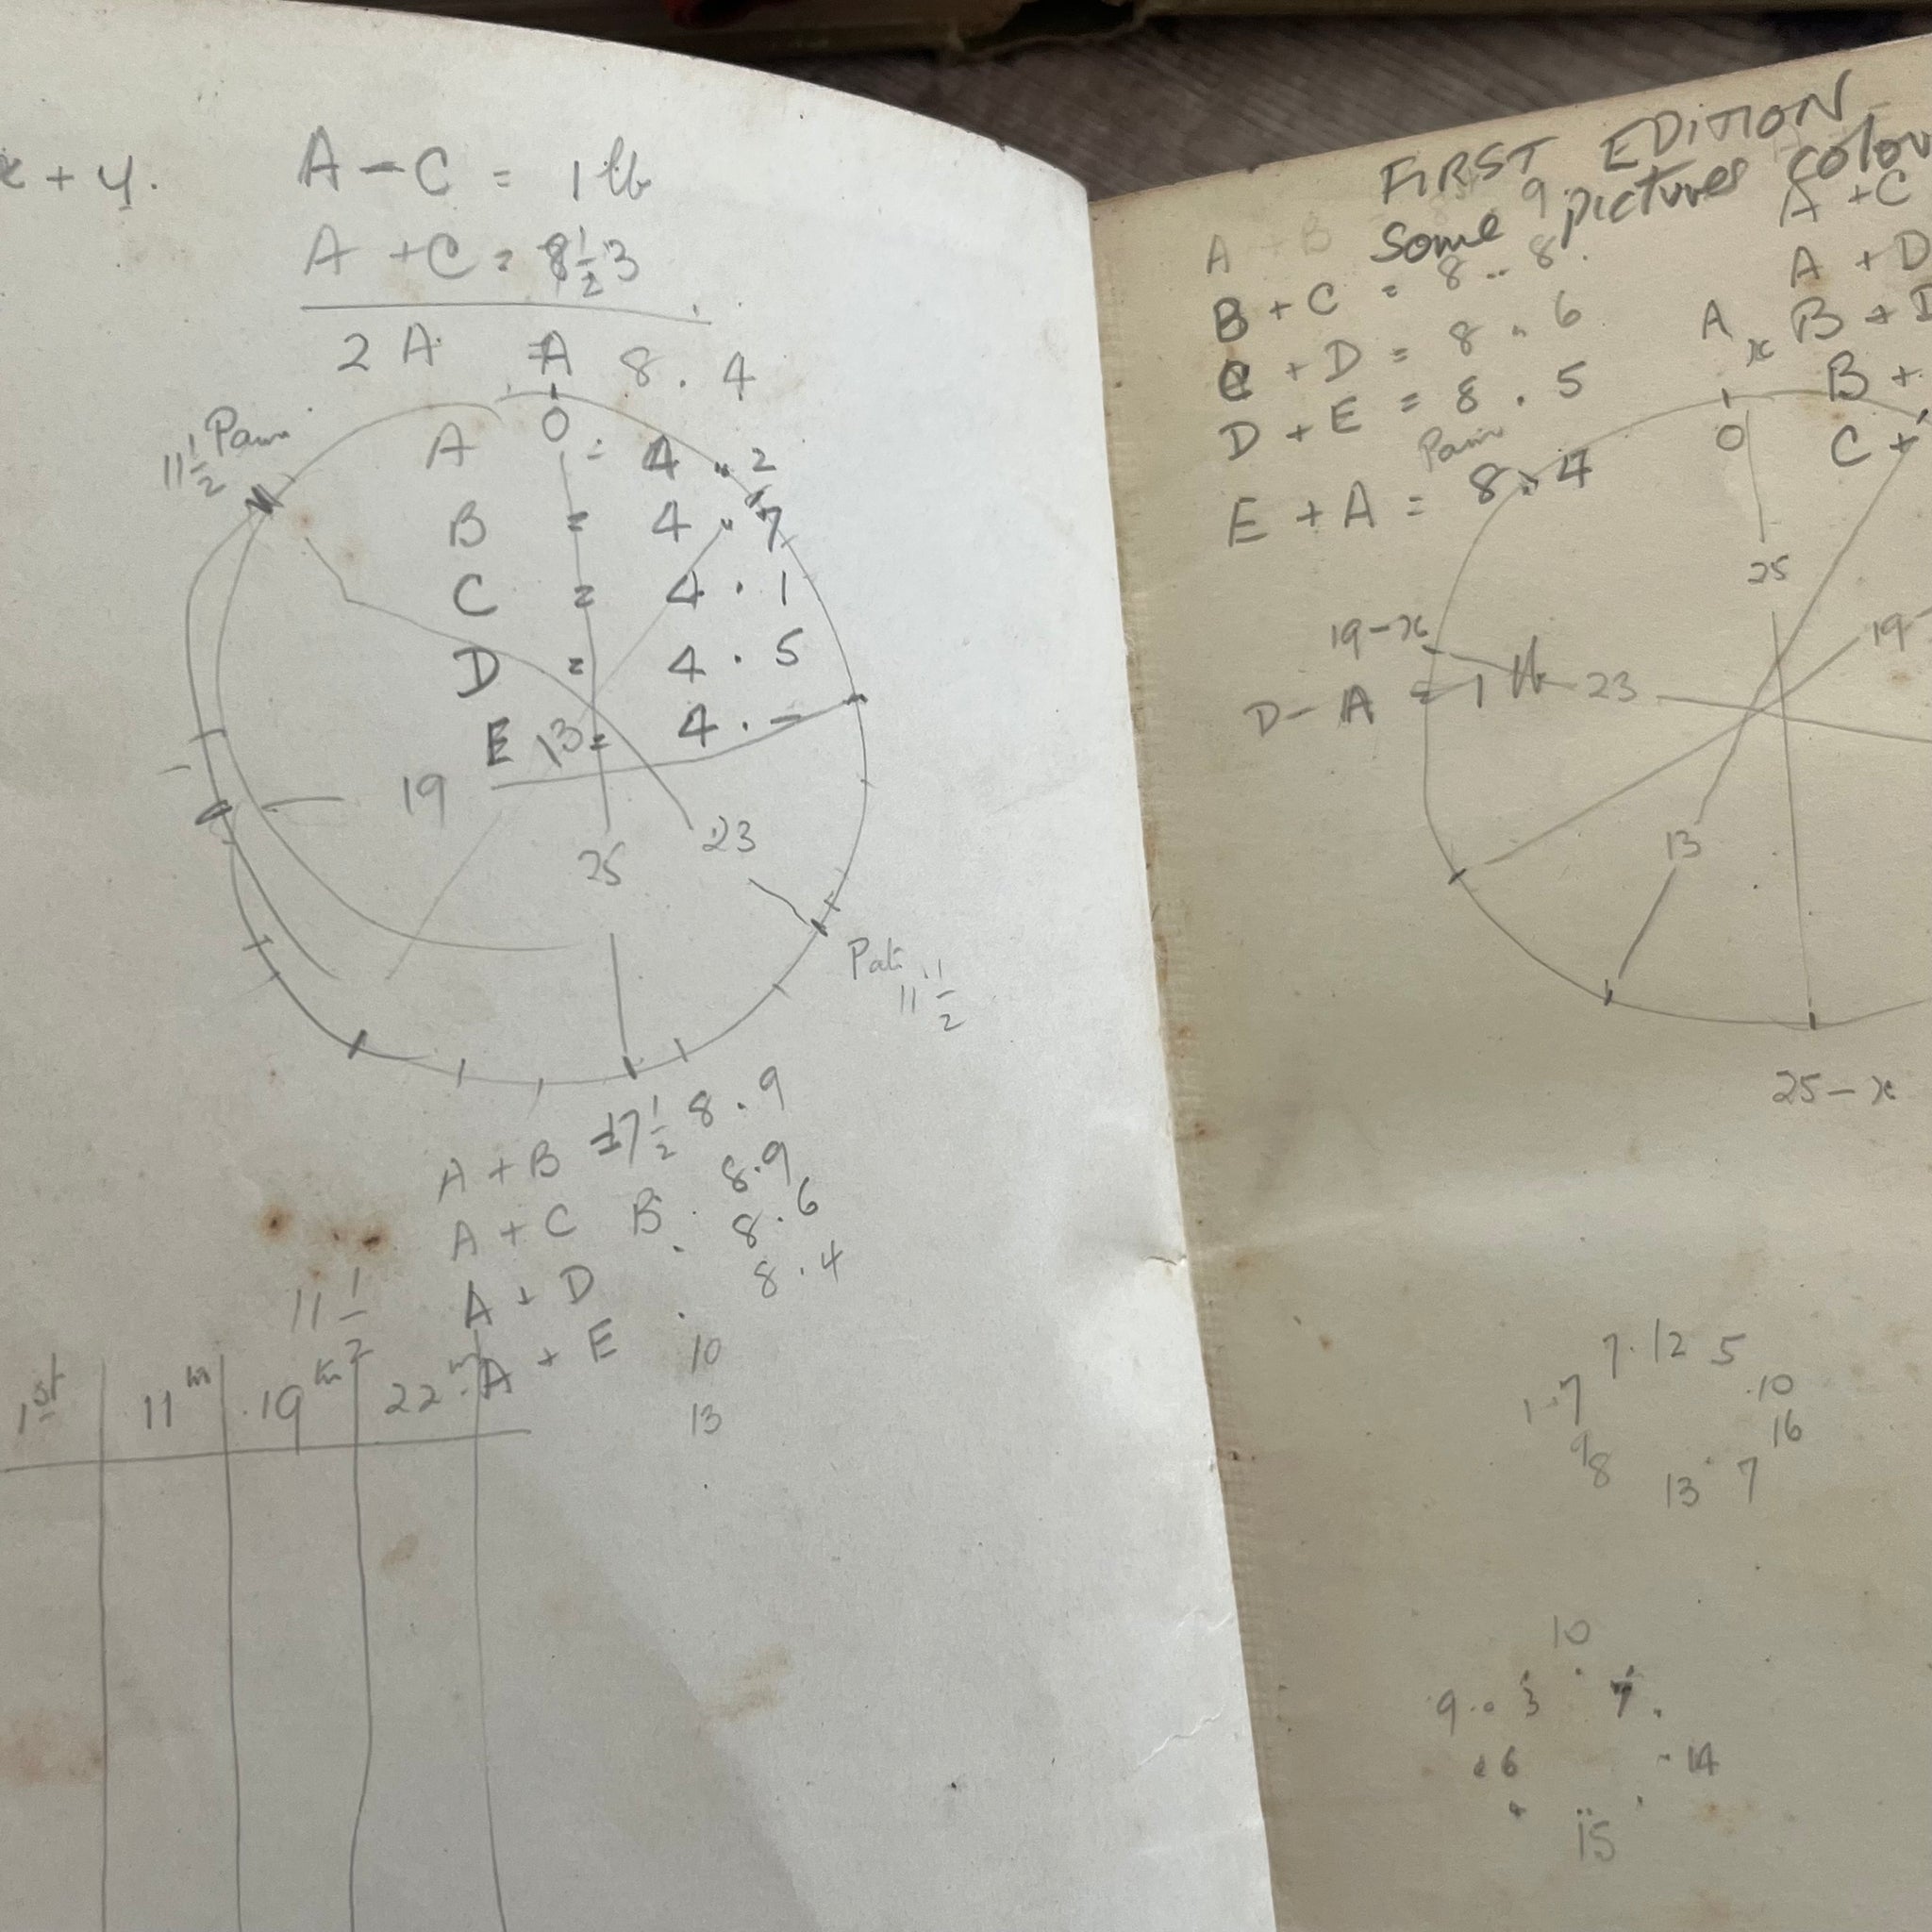 x + y.
A - C = 1 lb
A + C = 8½3
2 A = 8 . 4
A
0
11½ Pam
A = 4 .. 2
B = 4 .. 7
C = 4 . 1
D = 4 . 5
E = 4 . -
13
19
25
23
Pat
11½
17½
A + B = 8 . 9
A + C B . 8.9
A + D . 8.6
A + E . 8.4
11½
10
13
1st 11th 19th 22nd
FIRST EDITION
Some pictures
A + B 9
B + C = 8 .. 8.
C + D = 8 .. 6
D + E = 8 . 5
E + A = 8 . 4
Pam
A + C
A + D
B + D
B +
C +
A
x
0
25
19-x
D - A = 1 lb
23
19-
13
25 - x
7. 12 5
1.7 .10
9 16
8 13 7
10
9 .. 3 7.
6 14
15